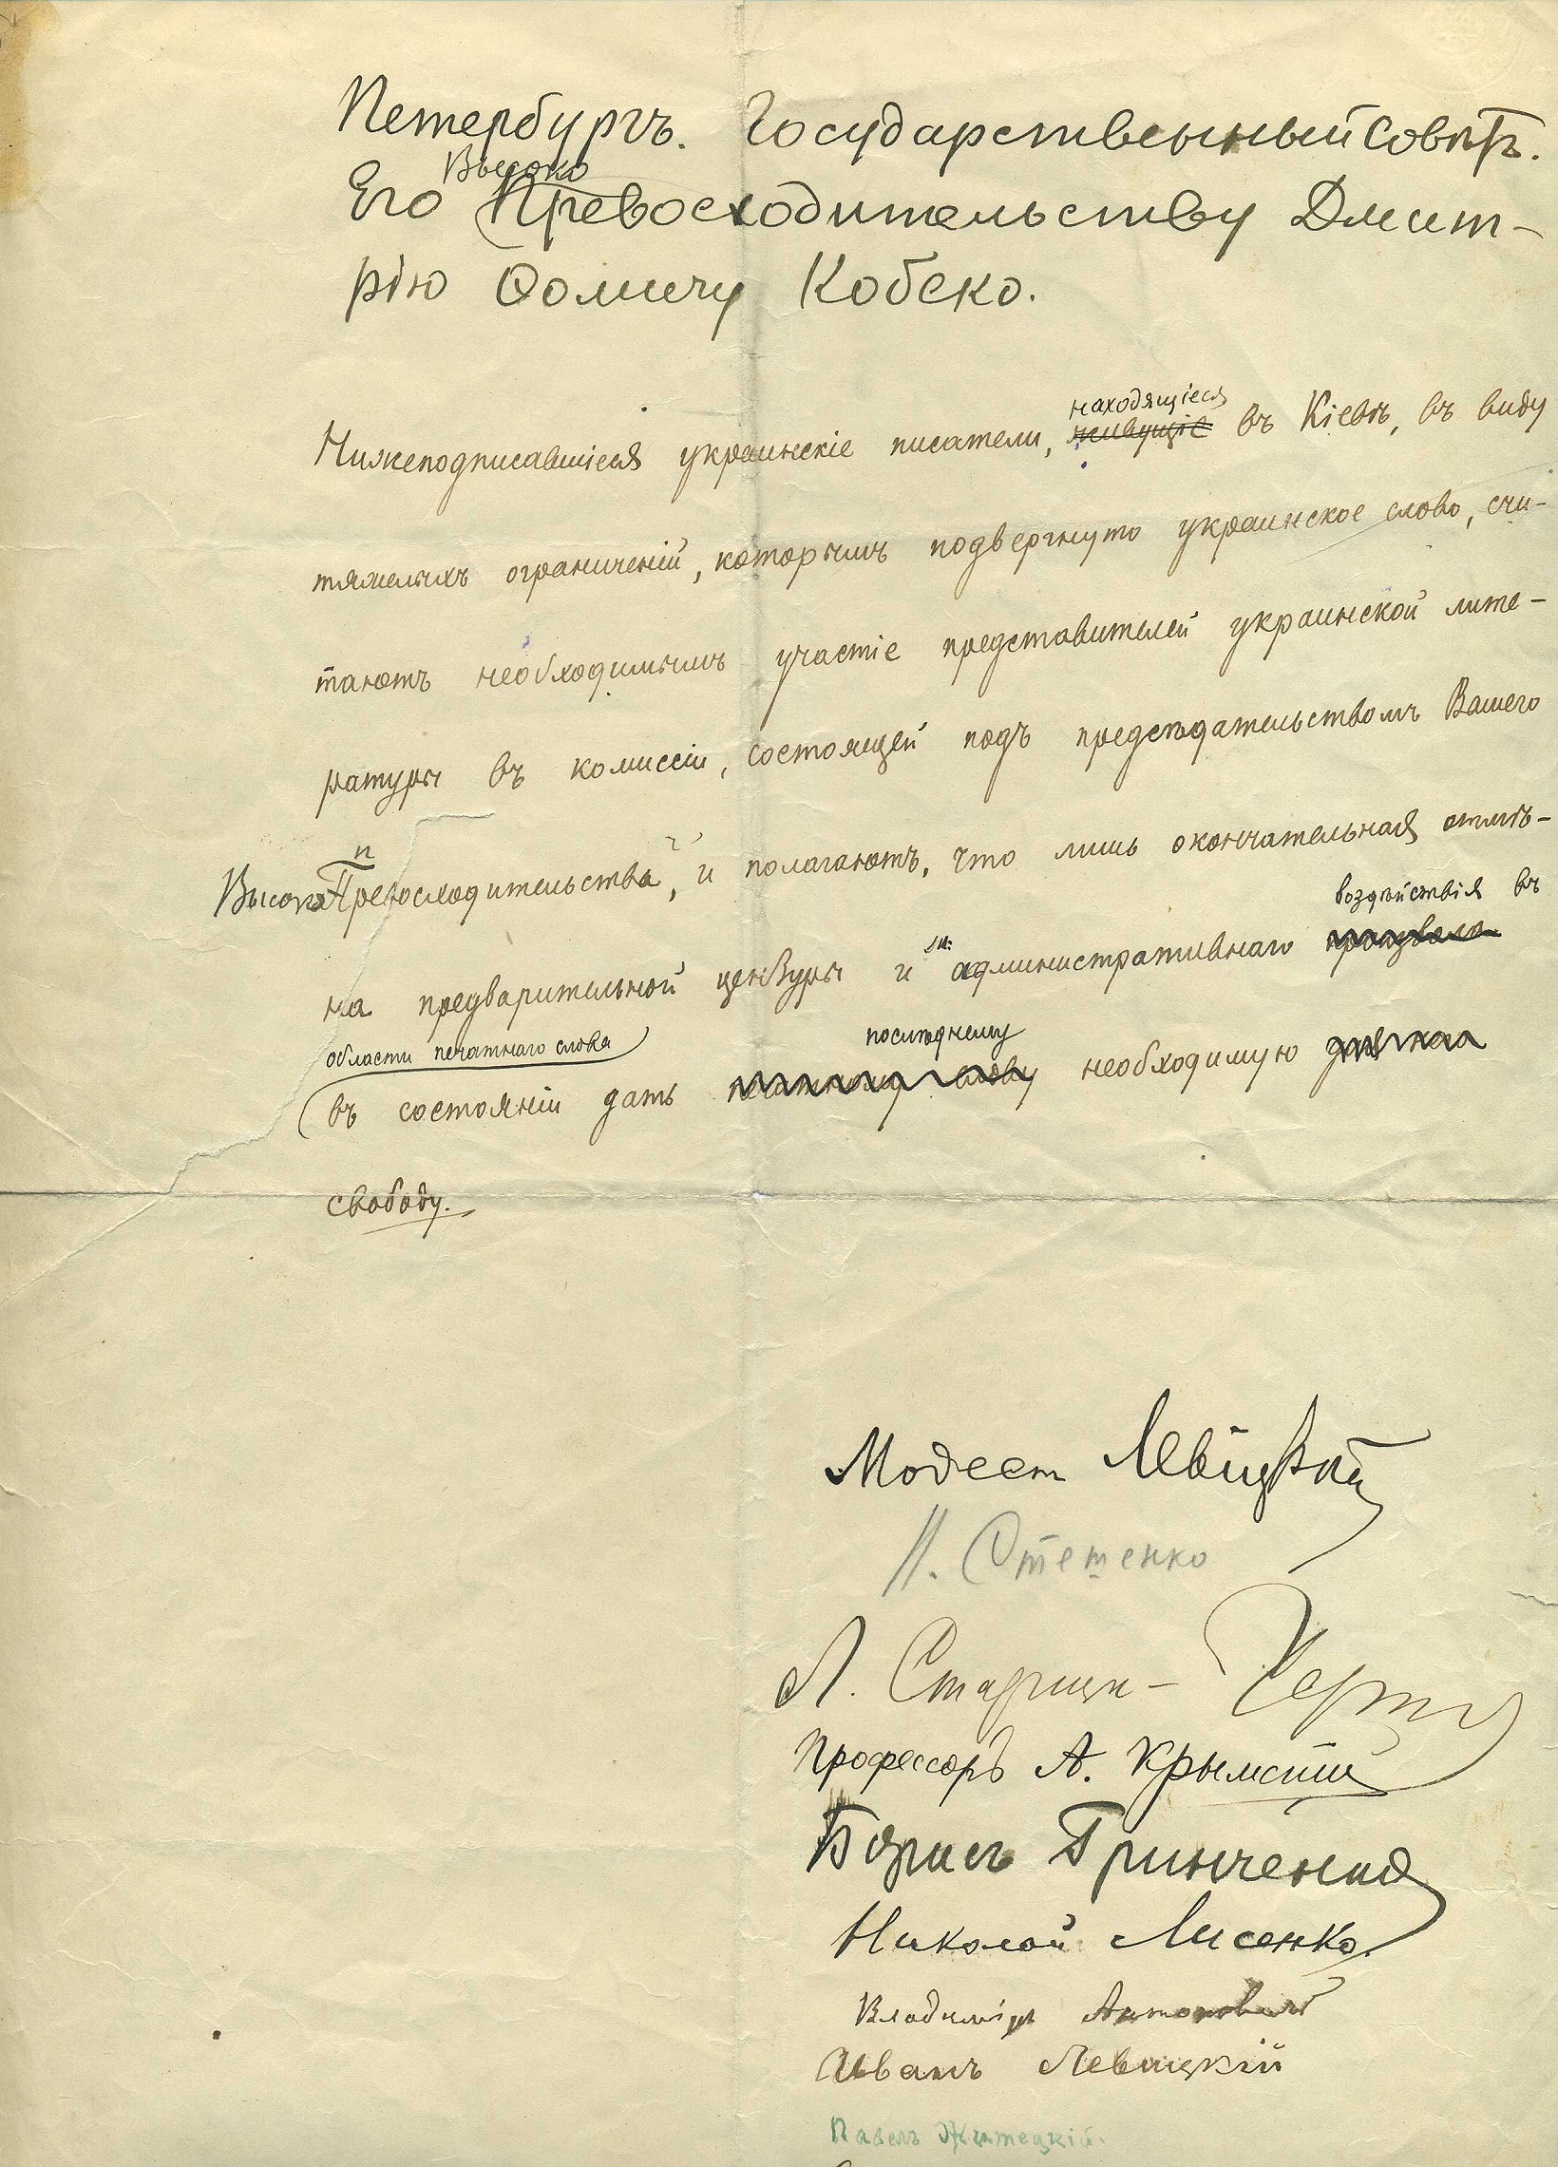 Петербургъ. Государственный Совѣтъ.
Высоко
Его Превосходительству Дмит-
рію Ѳомичу Кобеко.
находящіеся
Нижеподписавшіеся украинскіе писатели, живущіе въ Кіевѣ, въ виду
тяжелыхъ ограниченій, которымъ подвергнуто украинское слово, счи-
таютъ необходимымъ участіе представителей украинской лите-
ратуры въ комиссіи, состоящей подъ предсѣдательствомъ Вашего
п
ВысокоПревосходительства, и полагаютъ, что лишь окончательная отмѣ-
воздѣйствія въ
на предварительной цензуры и административнаго произвола
области печатнаго слова последнему
въ состояніи дать печатному слову необходимую для нея
свободу.
Модест Левицкий
И. Стешенко
Л. Старицка-Черня
Профессоръ А. Крымскій
Борисъ Гринченко
Николай Лисенко.
Владиміръ Антоновичъ
Иванъ Левицкій
Павелъ Житецкій.